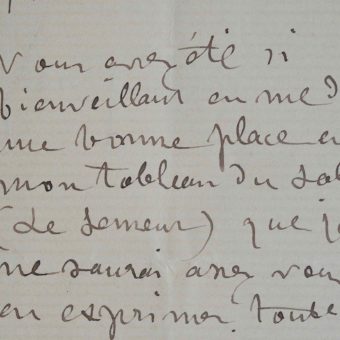 Vous avez été si
bienveillant en me d
une bonne place a
mon tableau du sal
(Le semeur) que je
ne saurai assez vou
en exprimer toute